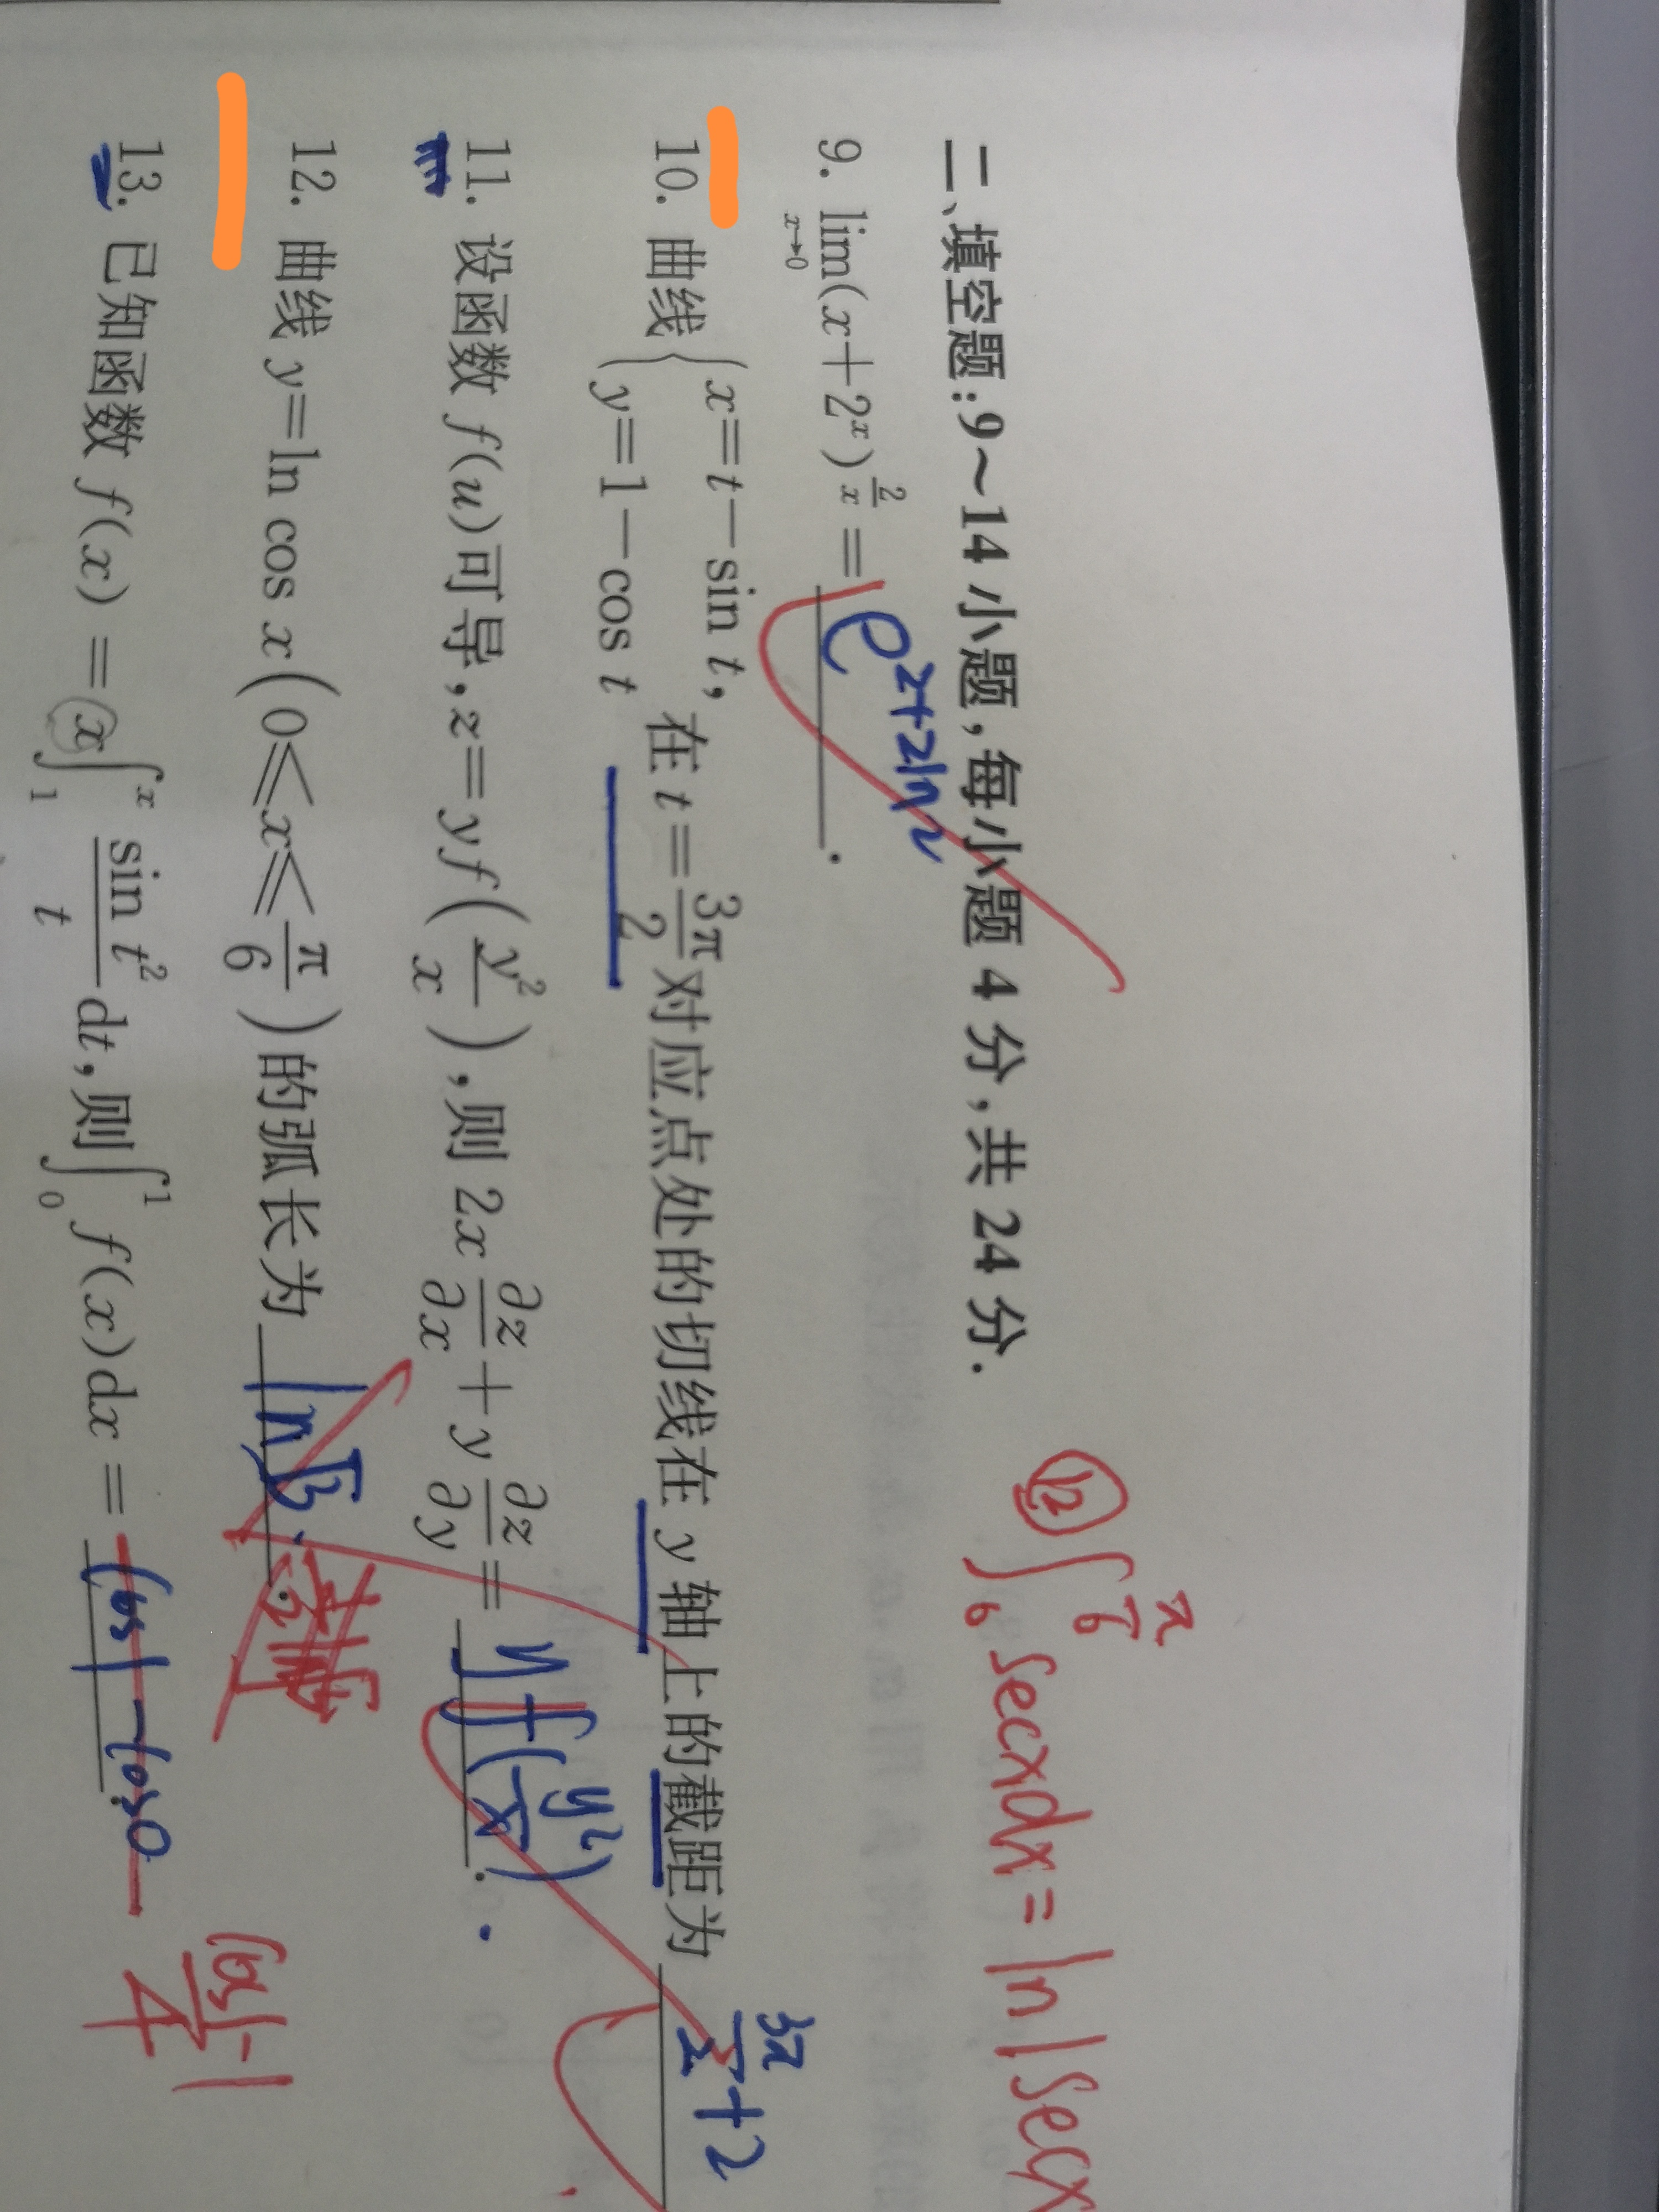 二、填空题:9~14 小题,每小题 4 分,共 24 分.
⑫ ∫₀^(π/6) secxdx = ln|secx
9. lim(x→0) (x+2^x)^(2/x) = e^(2+2ln2).
10. 曲线 { x=t−sin t, y=1−cos t 在 t=3π/2 对应点处的切线在 y 轴上的截距为 3π/2+2
11. 设函数 f(u)可导,z=yf(y²/x),则 2x ∂z/∂x + y ∂z/∂y = yf(y²/x).
12. 曲线 y=ln cos x(0≤x≤π/6)的弧长为 ln√3.
13. 已知函数 f(x) = x∫₁^x (sin t²)/t dt,则∫₀¹ f(x)dx = cos1−cos0
(cos1−1)/4